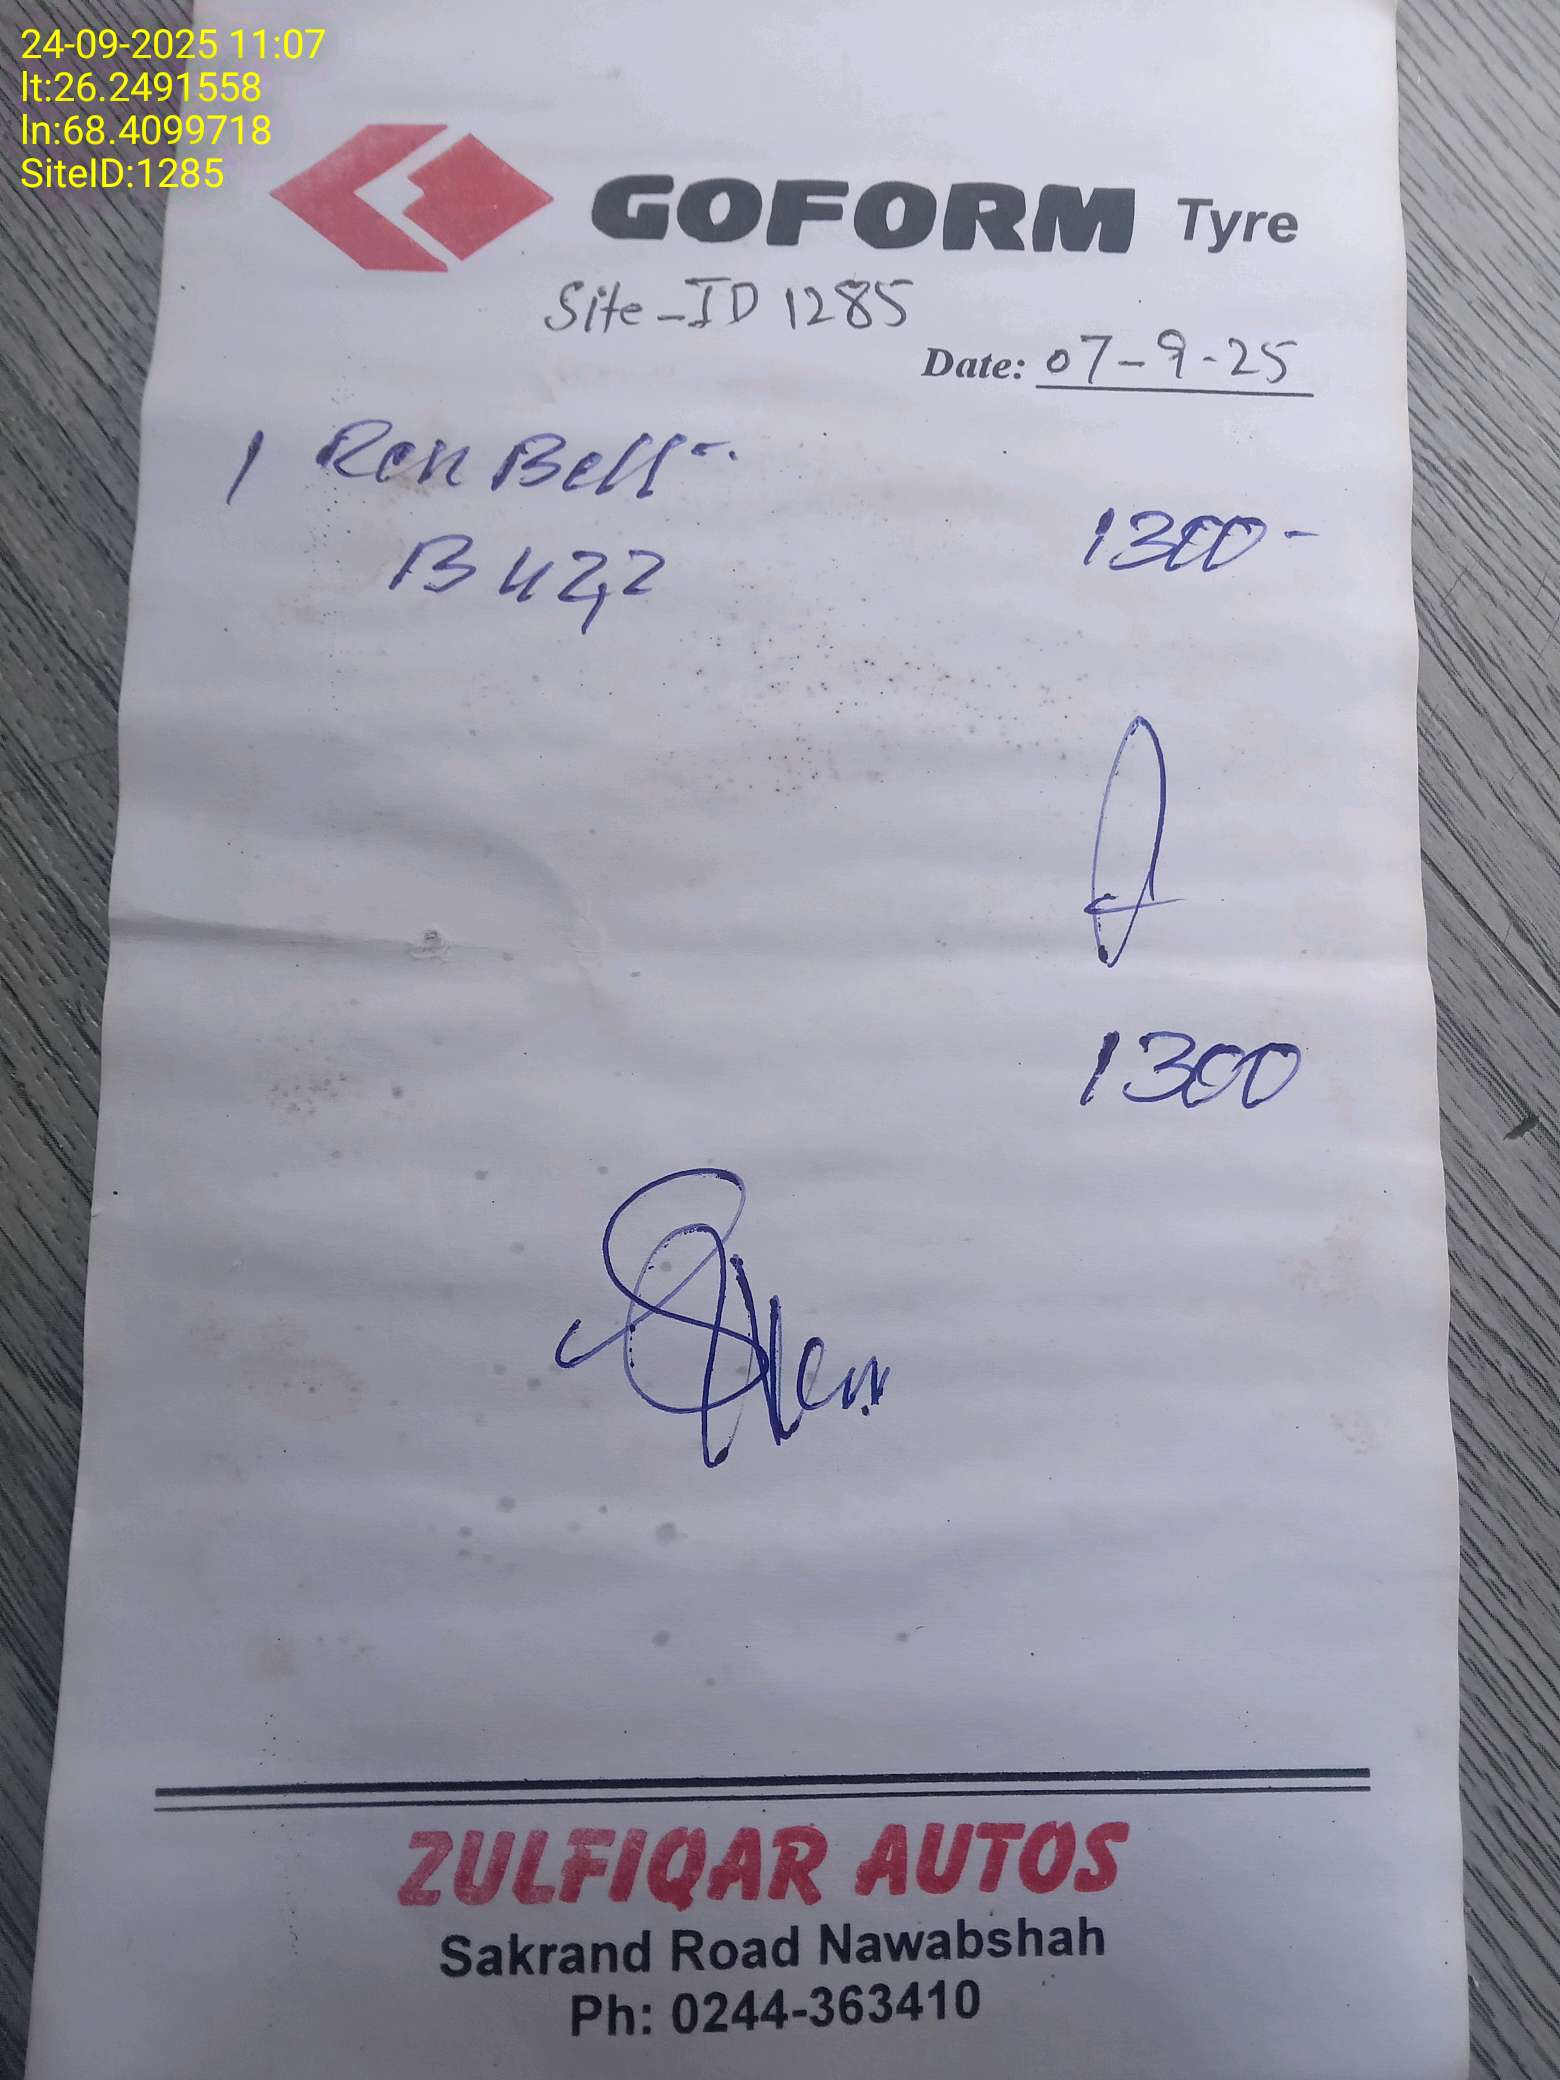 24-09-2025 11:07
lt:26.2491558
ln:68.4099718
SiteID:1285
GOFORM Tyre
Site-ID 1285
Date: 07-9-25
1 Ren Belt
1300-
B 42,2
1300
ZULFIQAR AUTOS
Sakrand Road Nawabshah
Ph: 0244-363410